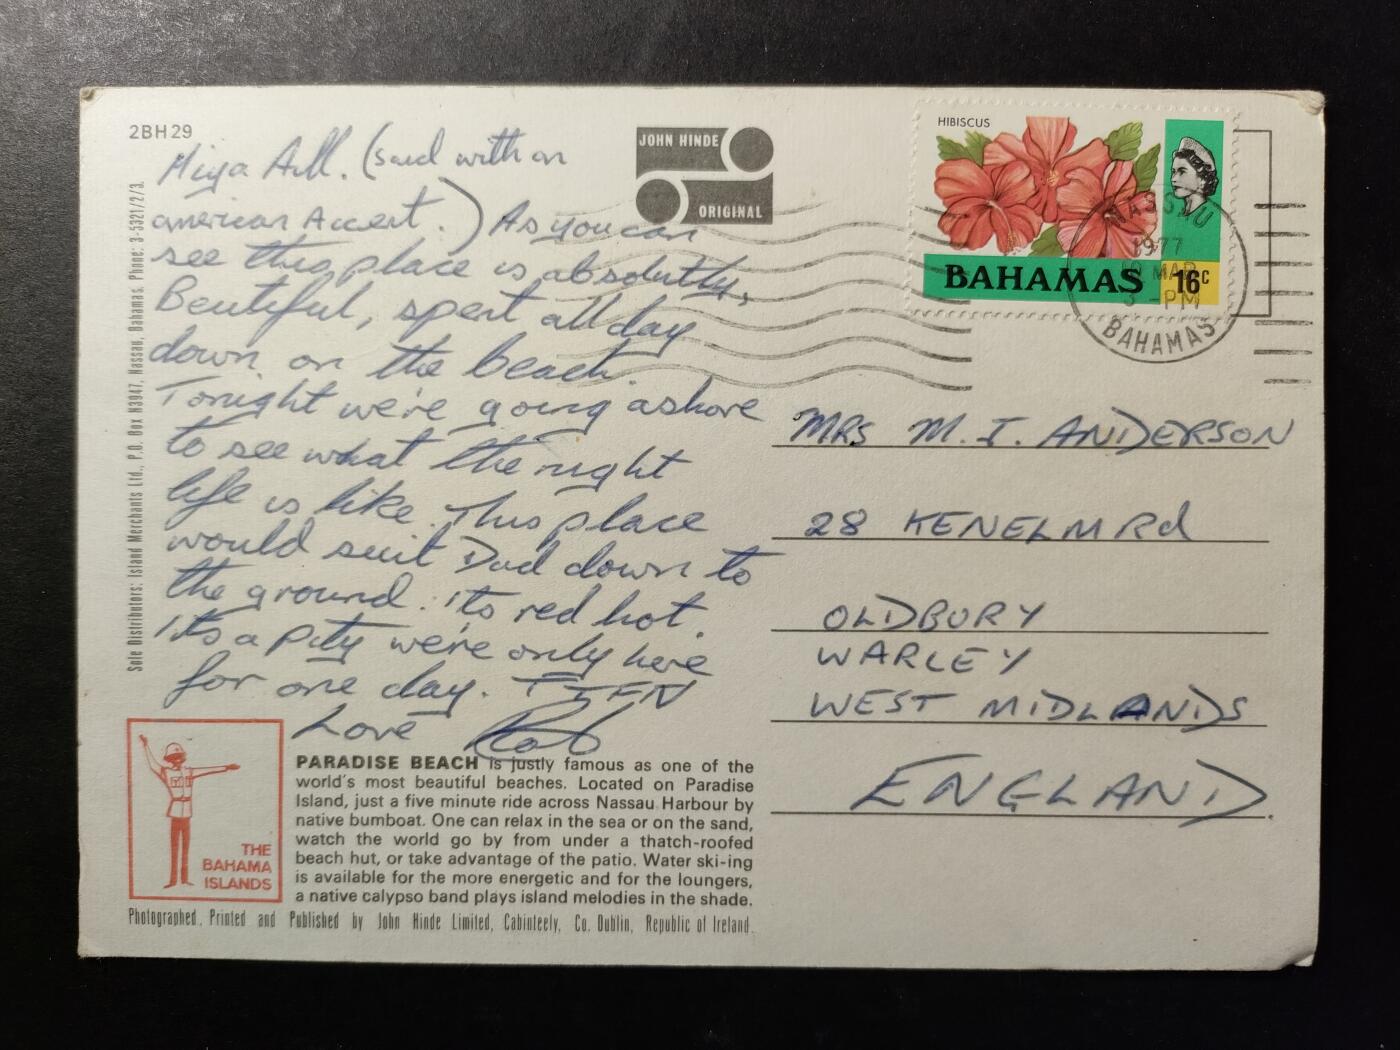 2BH29
Hiya All. (said with an
american Accent.) As you can
see this place is absolutly,
Beutiful, spent all day
down on the beach.
Tonight we're going ashore
to see what the night
life is like. This place
would suit Dad down to
the ground. it's red hot.
it's a pity we're only here
for one day. TTFN
Love Rob
JOHN HINDE
ORIGINAL
HIBISCUS
BAHAMAS 16c
NASSAU
1977
MAR
3-PM
BAHAMAS
MRS M. I. ANDERSON
28 KENELM Rd
OLDBURY
WARLEY
WEST MIDLANDS
ENGLAND.
Sole Distributors: Island Merchants Ltd., P.O. Box N3947, Nassau, Bahamas. Phone: 3-5321/2/3.
THE
BAHAMA
ISLANDS
PARADISE BEACH is justly famous as one of the
world's most beautiful beaches. Located on Paradise
Island, just a five minute ride across Nassau Harbour by
native bumboat. One can relax in the sea or on the sand,
watch the world go by from under a thatch-roofed
beach hut, or take advantage of the patio. Water ski-ing
is available for the more energetic and for the loungers,
a native calypso band plays island melodies in the shade.
Photographed, Printed and Published by John Hinde Limited, Cabinteely, Co. Dublin, Republic of Ireland.